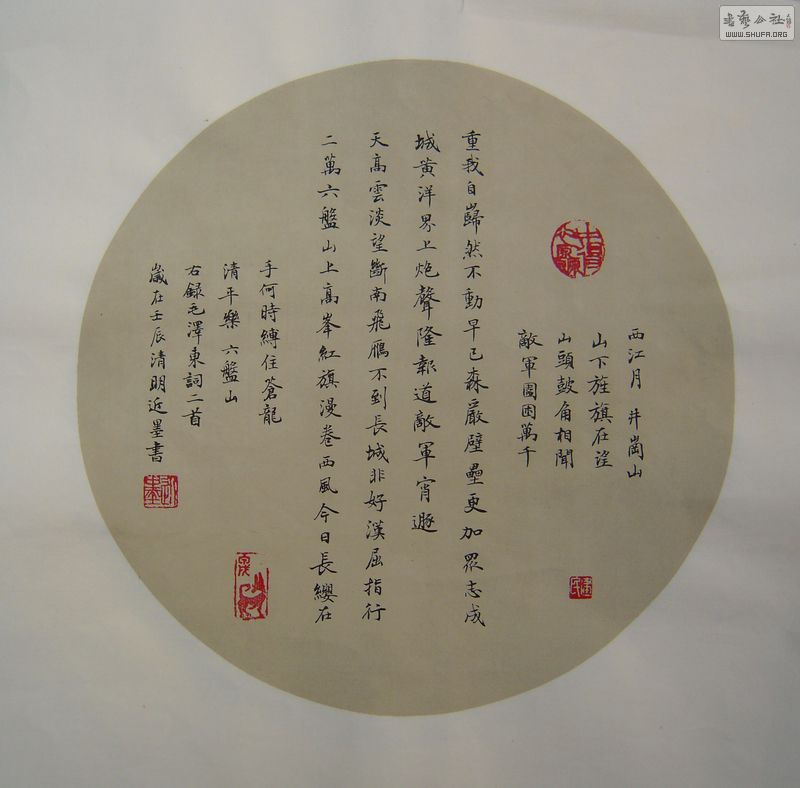 西江月 井崗山
山下旌旗在望
山頭鼓角相聞
敵軍圍困萬千
重我自巋然不動早已森嚴壁壘更加眾志成
城黃洋界上炮聲隆報道敵軍宵遯
天高雲淡望斷南飛鴈不到長城非好漢屈指行
二萬六盤山上高峯紅旗漫卷西風今日長纓在
手何時縛住蒼龍
清平樂 六盤山
右錄毛澤東詞二首
歲在壬辰清明近墨書
書藝公社
WWW.SHUFA.ORG